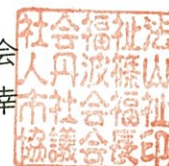 会
社会福祉法
人丹波篠山
市社会福祉
協議会長印